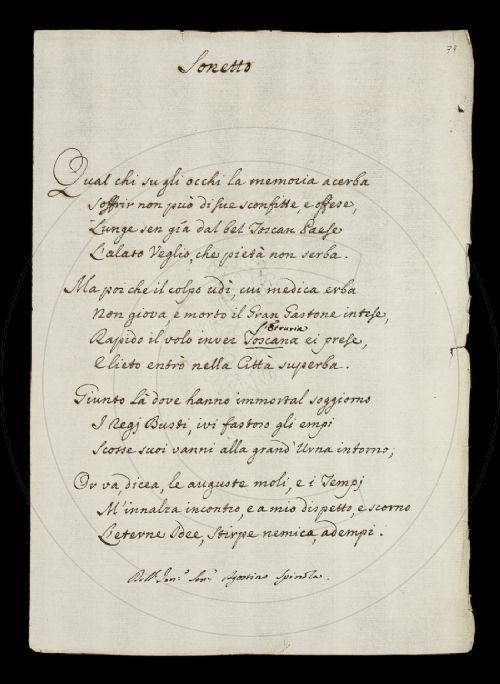 79
Sonetto
Qual chi su gli occhi la memoria acerba
Soffrir non può di sue sconfitte, e offese,
Lunge sen gía dal bel Toscan Paese
L'alato Veglio, che pietà non serba.
Ma poi che il colpo udì, cui medica erba
Non giova, e morto il Gran Gastone intese,
l'Etruria
Rapido il volo inver Toscana ei prese,
E lieto entrò nella Città superba.
Giunto là dove hanno immortal soggiorno
I Regj Busti, ivi fastoso gli empi
Scosse suoi vanni alla grand'Urna intorno;
Or va, dicea, le auguste moli, e i Tempj
M'innalza incontro, e a mio dispetto, e scorno
L'eterne Idee, Stirpe nemica, adempi.
Agostino Spinola.